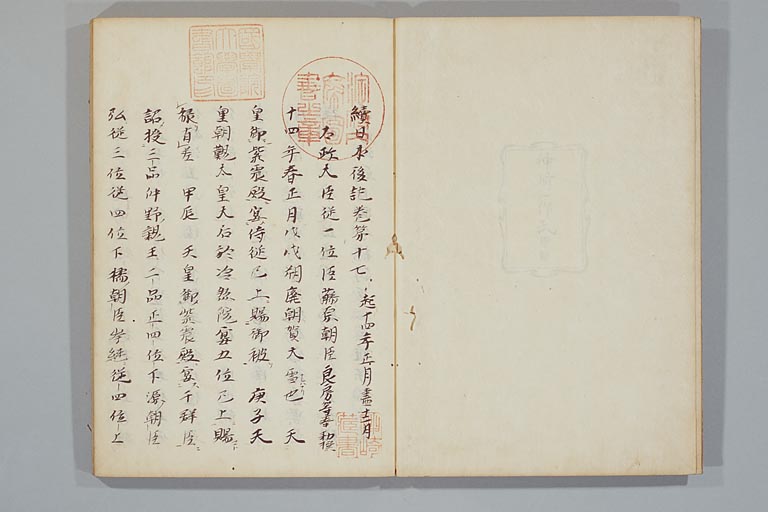 續日本後紀卷第十七 起十四年正月盡十二月
右大臣從二位臣藤原朝臣良房等奉勅撰
十四年春正月戊戌朔廢朝賀大雪也 天
皇御紫宸殿宴侍從已上賜御被 庚子天
皇朝覲太皇大后於冷然院宴五位已上賜
祿有差 甲辰 天皇御紫宸殿宴于群臣
詔授三品仲野親王二品正四位下源朝臣
弘從三位從四位下橘朝臣岑繼從四位上